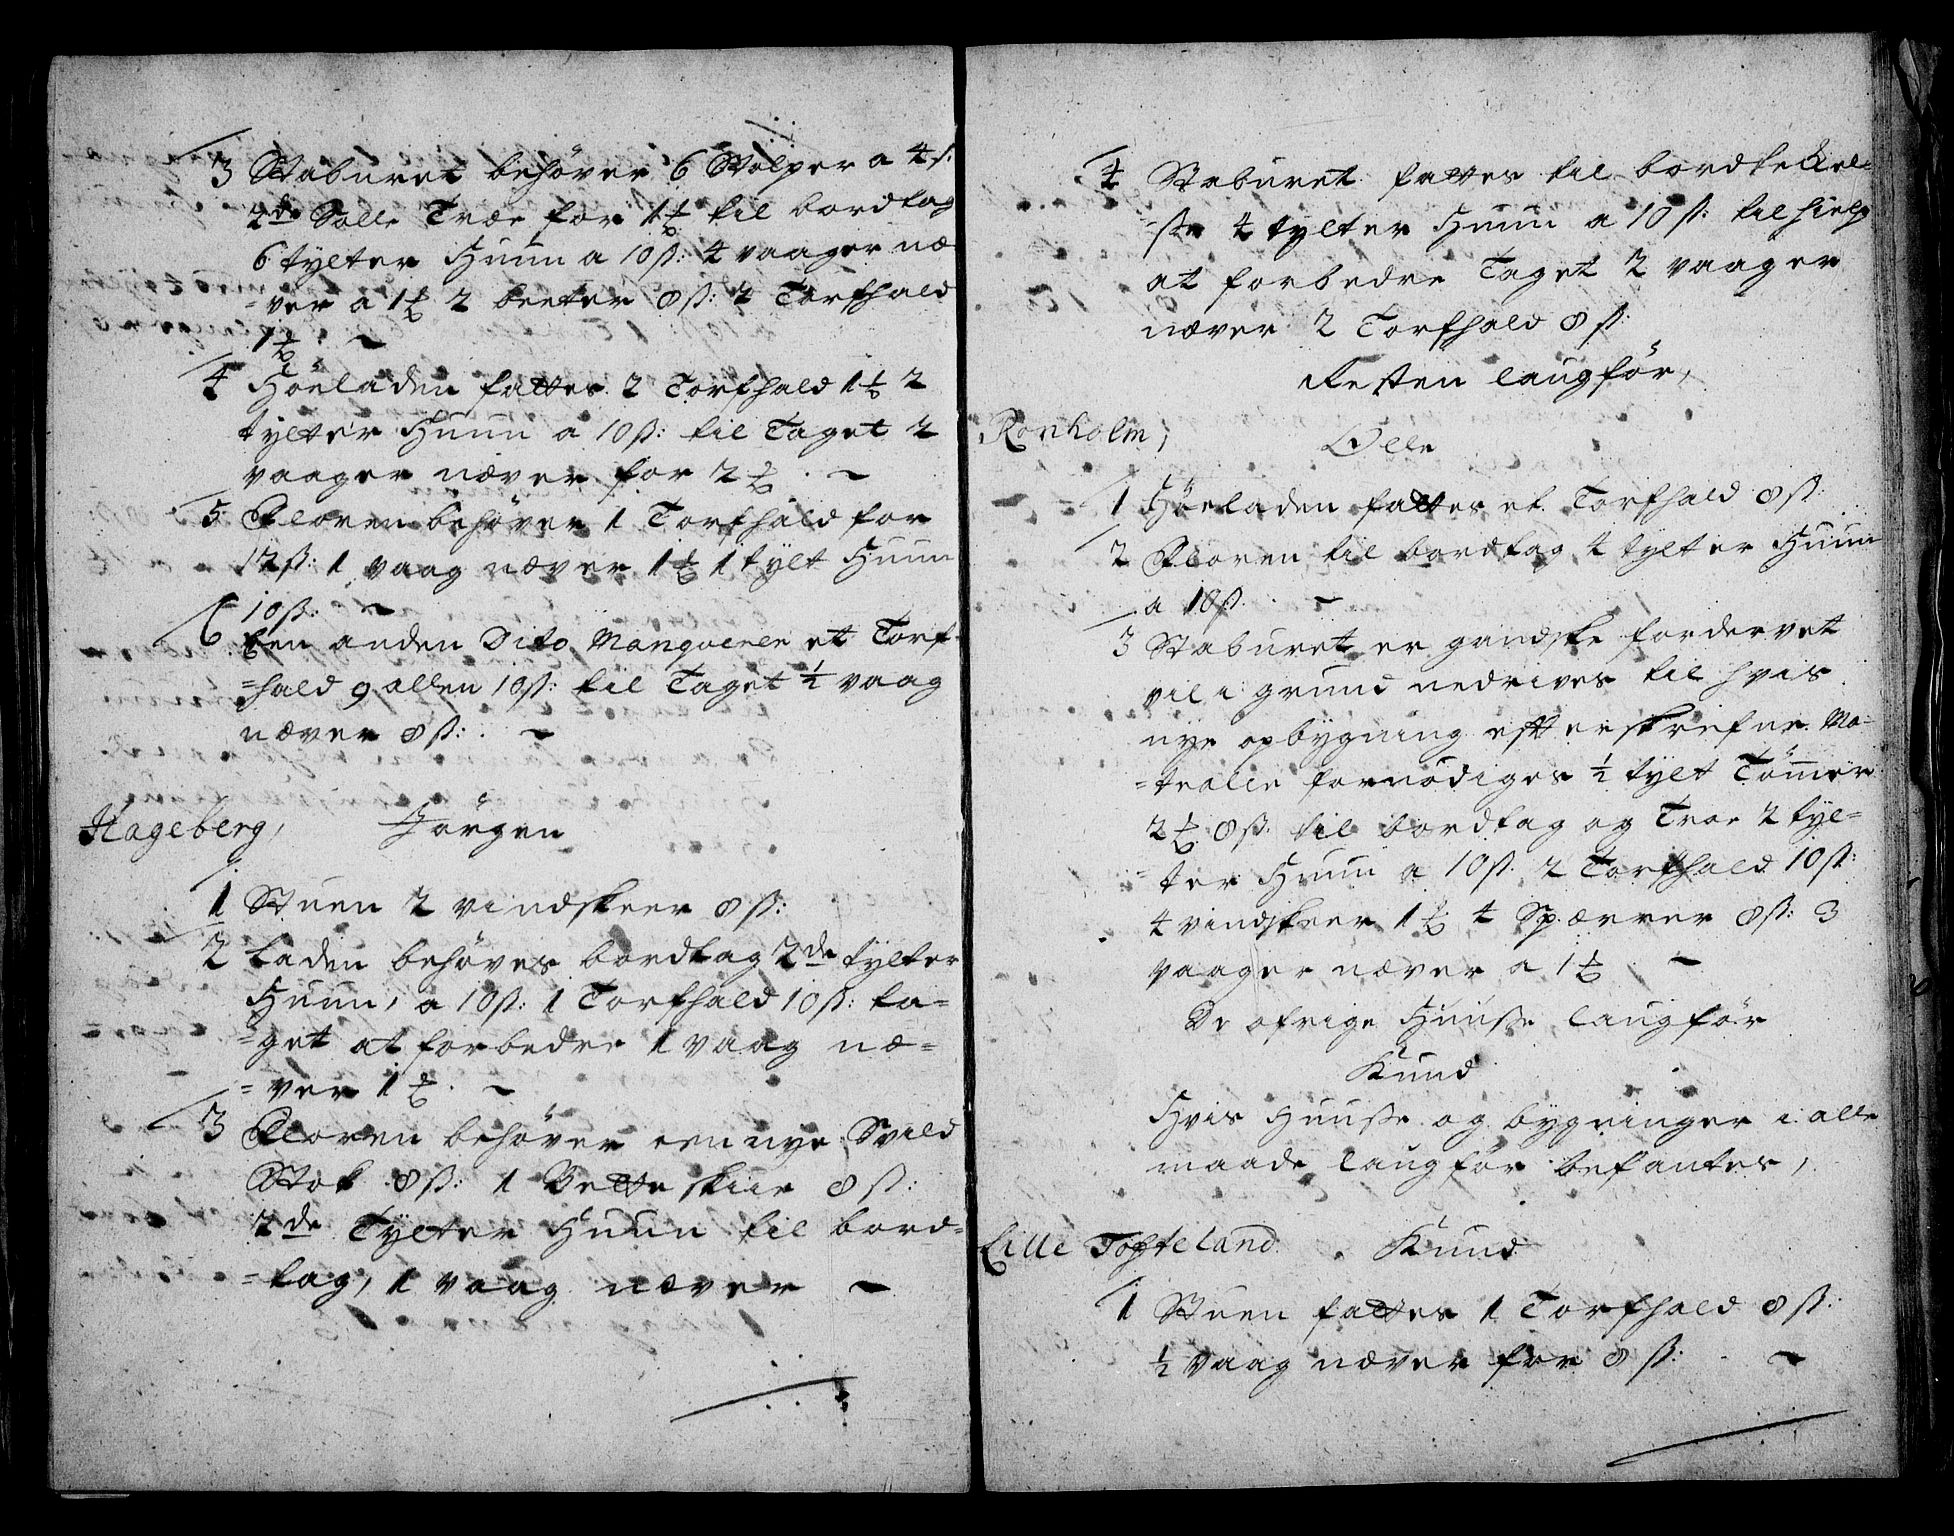 3 Staburet behøver 6 Stolper a 4 ß:
2de Solle Træe for 1 ½ til bordtag
6 tylter Huun a 10 ß: 4 vaager næ-
=ver a 1 2 beeter 8 ß: 2 Torfhald
1
4 Höeladen fattes 2 Torfhald 1 2
tylter Huun a 10 ß: til Taget 2
vaager næver for 2
5 Floren behøver 1 Torfhald for
12 ß: 1 vaag næver 1 1 tylt Huun
10 ß:
6 Een anden Dito Manqverer et Torf-
=hald 9 allen 10 ß: til Taget ½ vaag
næver 8 ß:
Hageberg, Jörgen
1 Stuen 2 vindskeer 8 ß:
2 Laden behøves bordtag 2de tylter
Huun, a 10 ß: 1 Torfhald 10 ß: ta=
=get at forbedre 1 vaag næ=
=ver 1
3 Floren behøver een nye Svild
Stok 8 ß: 1 Bette skiie 8 ß:
2de Tylter Huun til bord=
=tag, 1 vaag næver
4 Staburet fattes til bordtekkel=
=se 4 tylter Huun a 10 ß: til hielp
at forbedre Taget 2 vaager
næver 2 Torfhald 8 ß:
Resten laugför,
Ronholm, Olle
1 Höeladen fattes et Torfhald 8 ß:
2 Floren til bordtag 4 tylter Huun
a 10 ß.
3 Staburet er gandske fordervet
vil i grund nedrives til hvis
nye opbygning efterskrefne Ma=
=tealle fornødiges ½ tylt Tömer
2 8 ß: til bordtag og Træe 2 tyl=
=ter Huun a 10 ß. 2 Torfhald 10 ß:
4 vindskeer 1 4 Spærrer 8 ß: 3
vaager næver a 1
De øfrige Huuse laugför
Knud
Hvis Huuse og bygninger i alle
maade laugför befantes,
Lille Tofteland Knud
1 Stuen fattes 1 Torfhald 8 ß:
½ vaag næver for 8 ß: